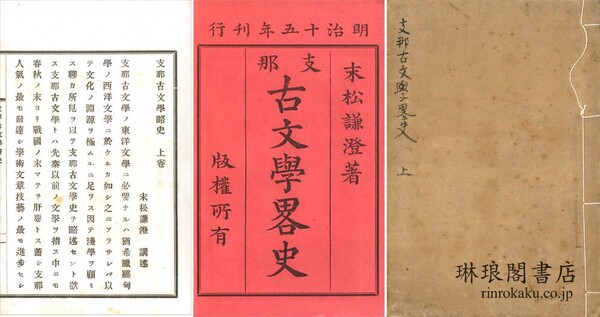 支那古文學略史 上卷
末松謙澄 講述
支那古文學ノ東洋文學ニ必要ナルハ猶希臘羅甸
學ノ西洋文學ニ於ケルカ如シ之ニアラサレハ以
テ文化ノ淵源ヲ極ムルニ足ラス因テ淺學ヲ顧ミ
ス聊カ所見ヲ以テ支那古文學史ヲ略述セント欲
ス支那古文學トハ先秦以前ノ文學ヲ指ス中ニモ
春秋ノ末ヨリ戰國ノ末マテヲ肝要トス蓋シ支那
人氣ノ最モ發達シ學術文章技藝ノ最モ進步セシ
明治十五年刊行
末松謙澄著
支那
古文學畧史
版權所有
支那古文學畧史 上
琳琅閣書店
rinrokaku.co.jp